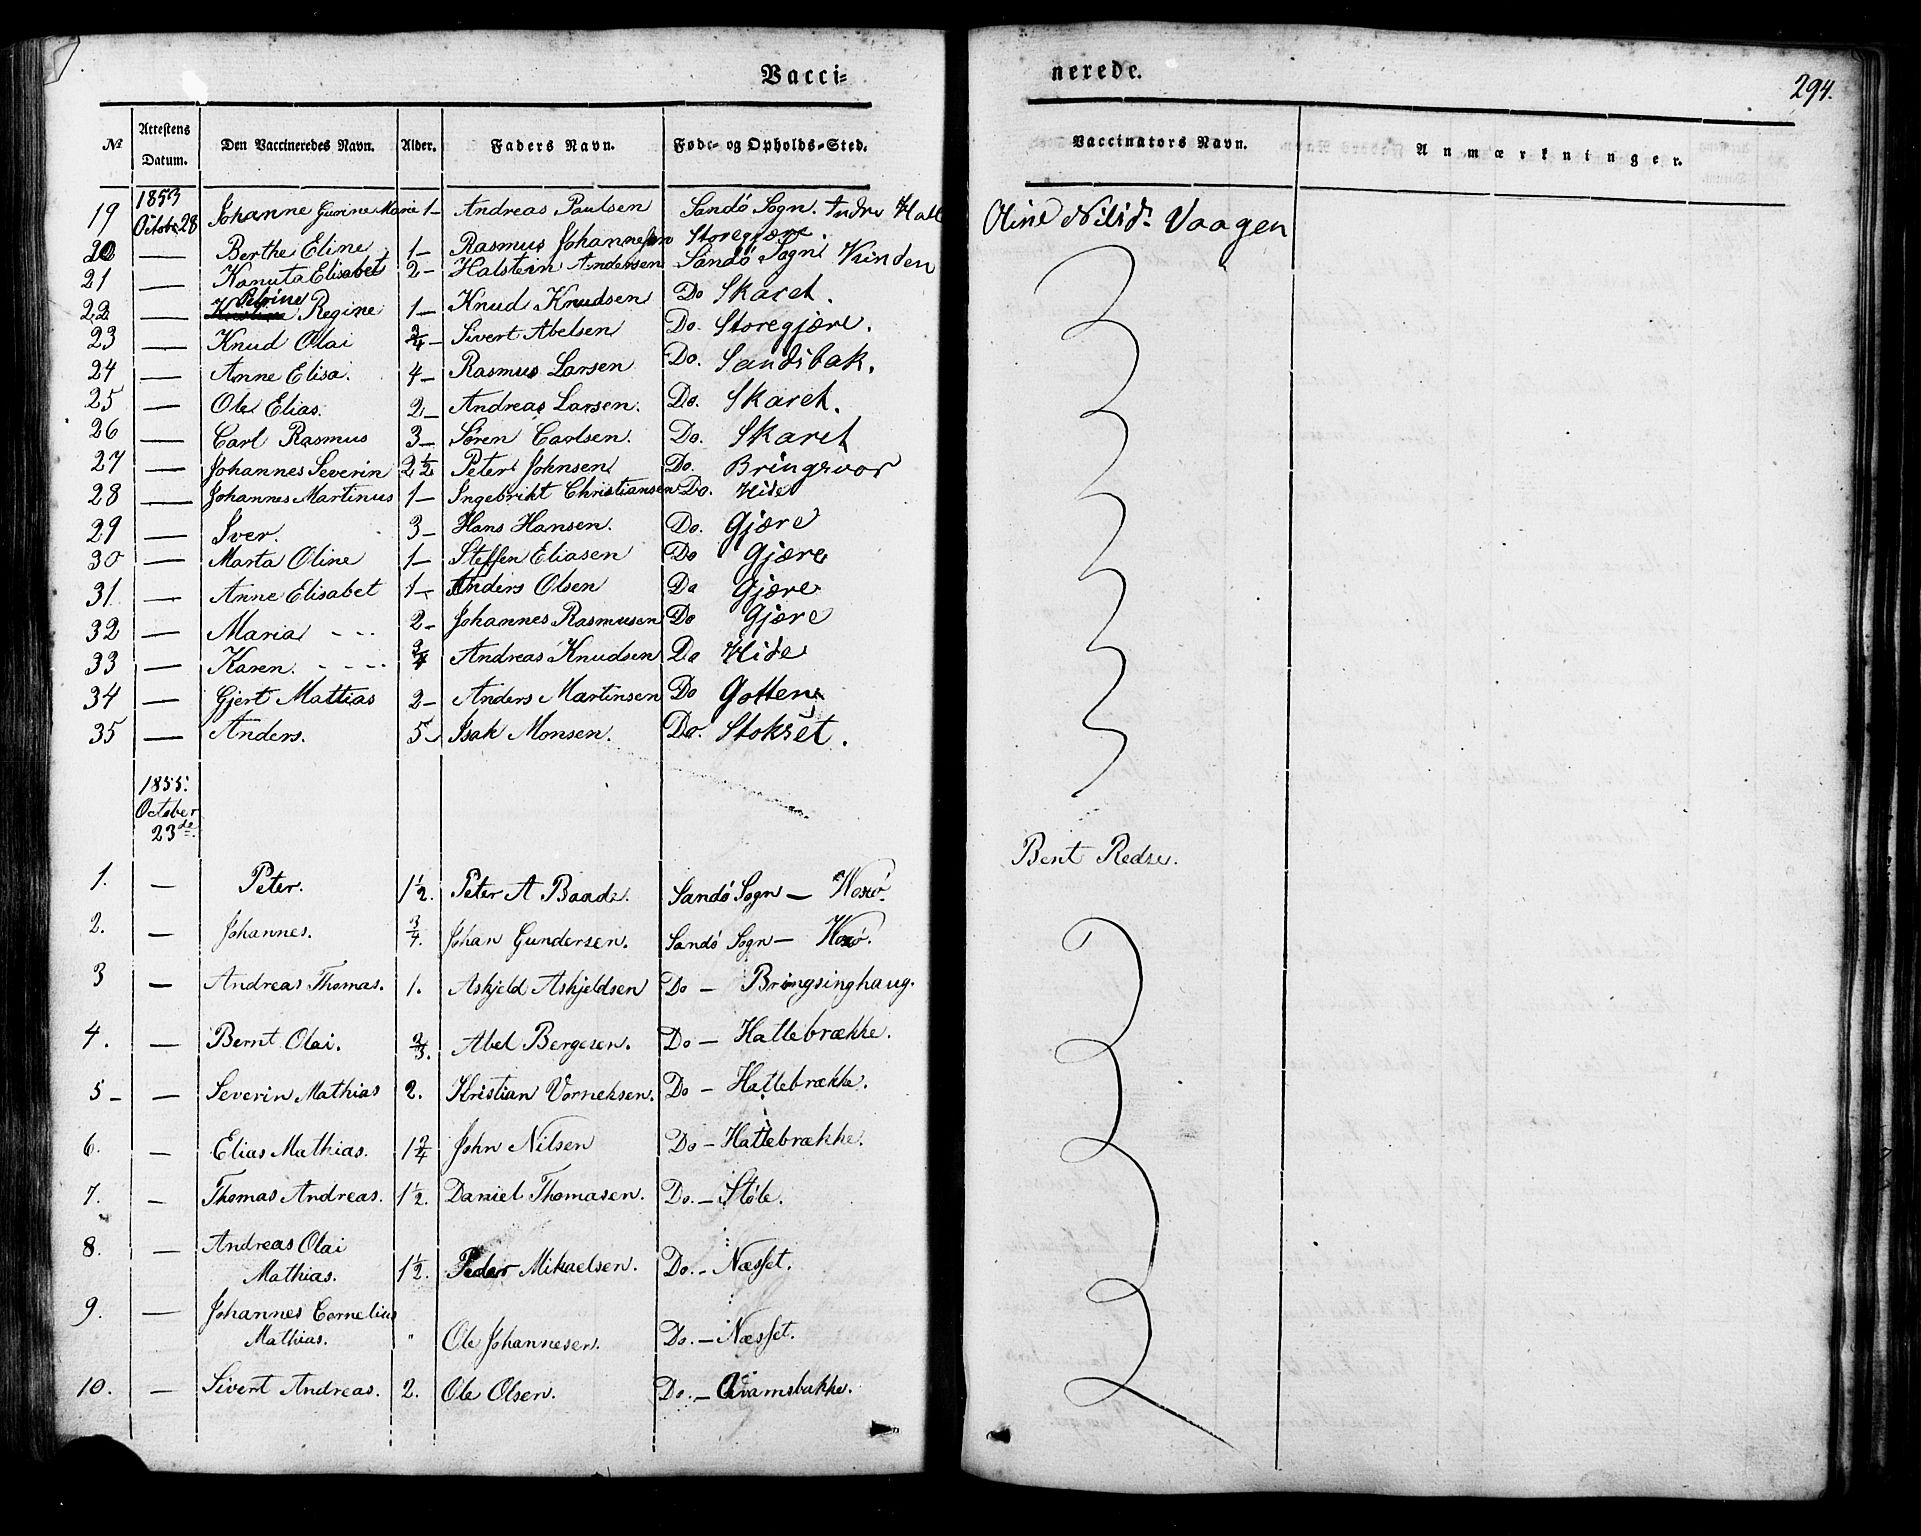 Vacci=
nerede.
294.
№ Attestens Datum. Den Vaccineredes Navn. Alder. Faders Navn. Føde- og Opholds-Sted. Vaccinators Navn. Anmærkninger.
1853
19 Octobr 28 Johanne Gurine Marie 1– Andreas Paulsen Sandö Sogn. Indre Oline Nilsdr Vaagen
20 — Berthe Eline 1– Rasmus Johannesen Storegjære
21 — Kanuta Elisabet 2– Halstein Andersen Sandö Sogn
22 — Petrine Regine 1– Knud Knudsen Do Skaret.
23 — Knud Olai 3/4– Sivert Abelsen Do. Storegjære.
24 — Anne Elisa. 4– Rasmus Larsen Do. Sandsbak.
25 — Ole Elias. 2– Andreas Larsen. Do. Skaret.
26 — Carl Rasmus 3– Sören Carlsen. Do. Skaret
27 — Johannes Severin 2 1/2 Peter Johnsen Do. Bringsvor
28 — Johannes Martinus 1– Ingebrikt Christiansen Do. Hide
29 — Iver. 3– Hans Hansen. Do. Gjære
30 — Marta Oline 1– Steffen Eliasen Do Gjære
31 — Anne Elisabet 1– Anders Olsen Do Gjære
32 — Maria - - - 2– Johannes Rasmusen Do Gjære
33 — Karen. - - - - 3/4 Andreas Knudsen Do Hide
34 — Gjert Mattias 2– Anders Martinsen Do Gotten
35 — Anders. 5– Isak Monsen. Do. Stokset.
1855.
October
23de
Bent Redse.
1. — Peter. 1 1/2. Peter A Baade. Sandö Sogn –
2. — Johannes. 3/4. Johan Gundersen. Sandö Sogn –
3 — Andreas Thomas. 1. Askjeld Askjeldsen Do – Bringsinghaug.
4. — Bernt Olai. 2/3. Abel Bergesen. Do – Hattebrække.
5 – — Severin Mathias 2. Kristian Do – Hattebrække.
6. — Elias Mathias. 1 3/4 John Nilsen Do – Hattebrække.
7. — Thomas Andreas. 1 1/2. Daniel Thomasen. Do. – Støle.
8. — Andreas Olai
Mathias. 1 1/2. Peder Mikaelsen. Do. – Næsset.
9. — Johannes Cornelius
Mathias. " Ole Johannesen. Do. – Næsset.
10. — Sivert Andreas. 2. Ole Olsen. Do. – Qvamsbakke.